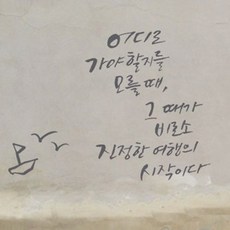 어디로
가야 할지를
모를 때,
그 때가
비로소
진정한 여행의
시작이다